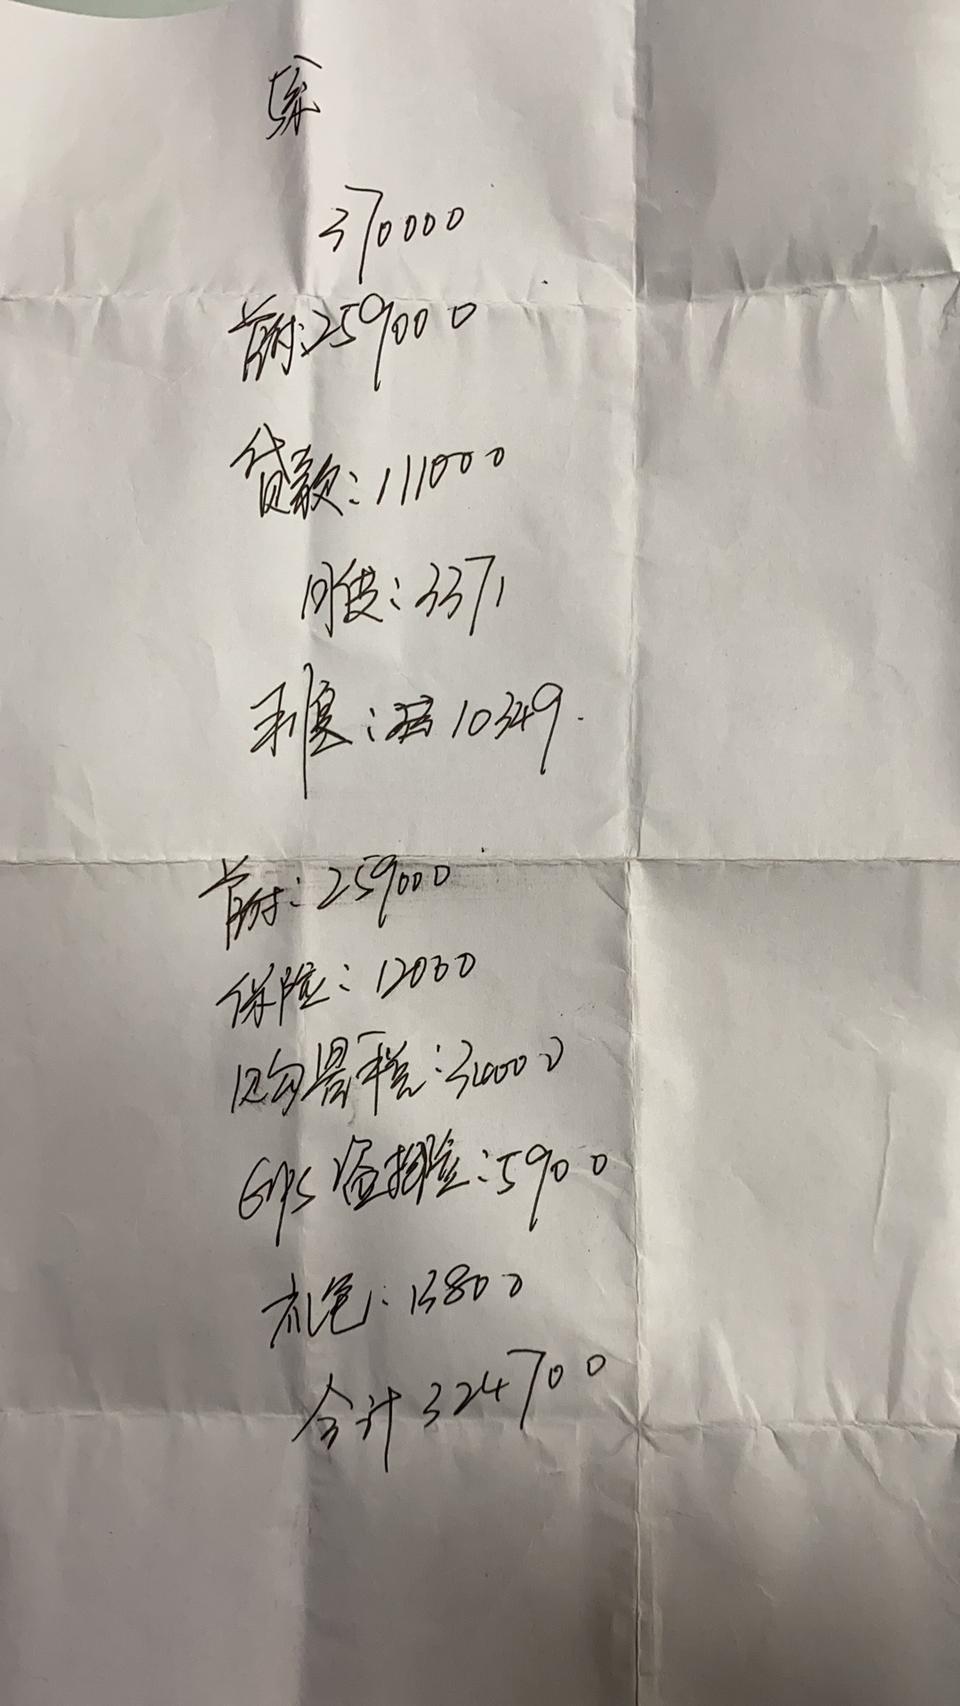 370000
首付:259000
贷款:111000
月供:3371
利息:10349.
首付:259000
保险:12000
购置税:34000
GPS盗抢险:5900
礼包:13800
合计324700